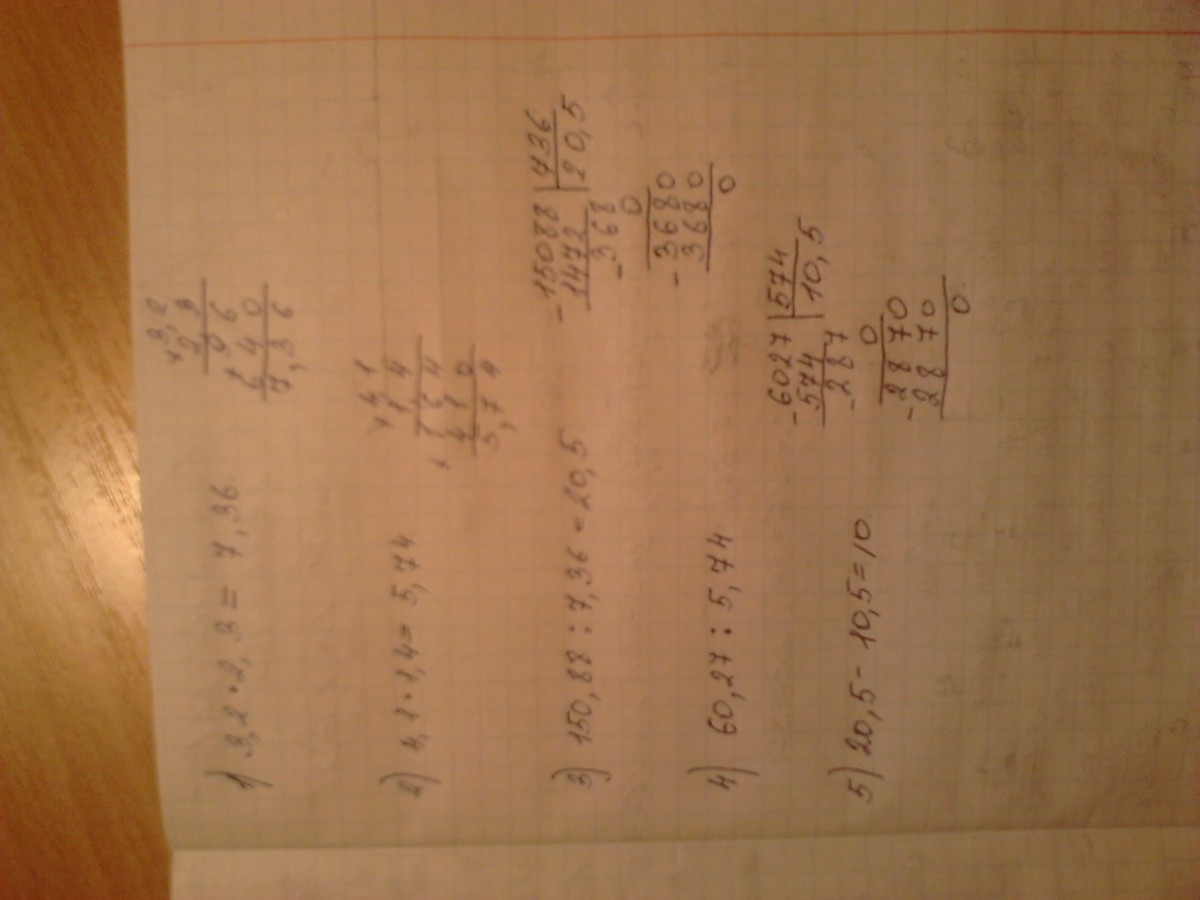 1) 3,2 · 2,3 = 7,36
× 3,2
2 3
+ 9 6
6 4 0
7,3 6
2) 4,1 · 1,4 = 5,74
× 4 1
1 4
+ 1 6 4
4 1 0
5,7 4
3) 150,88 : 7,36 = 20,5
- 15088 | 736
1472 | 20,5
- 368
0
- 3680
3680
0
4) 60,27 : 5,74
- 6027 | 574
574 | 10,5
- 287
0
- 2870
2870
0
5) 20,5 - 10,5 = 10